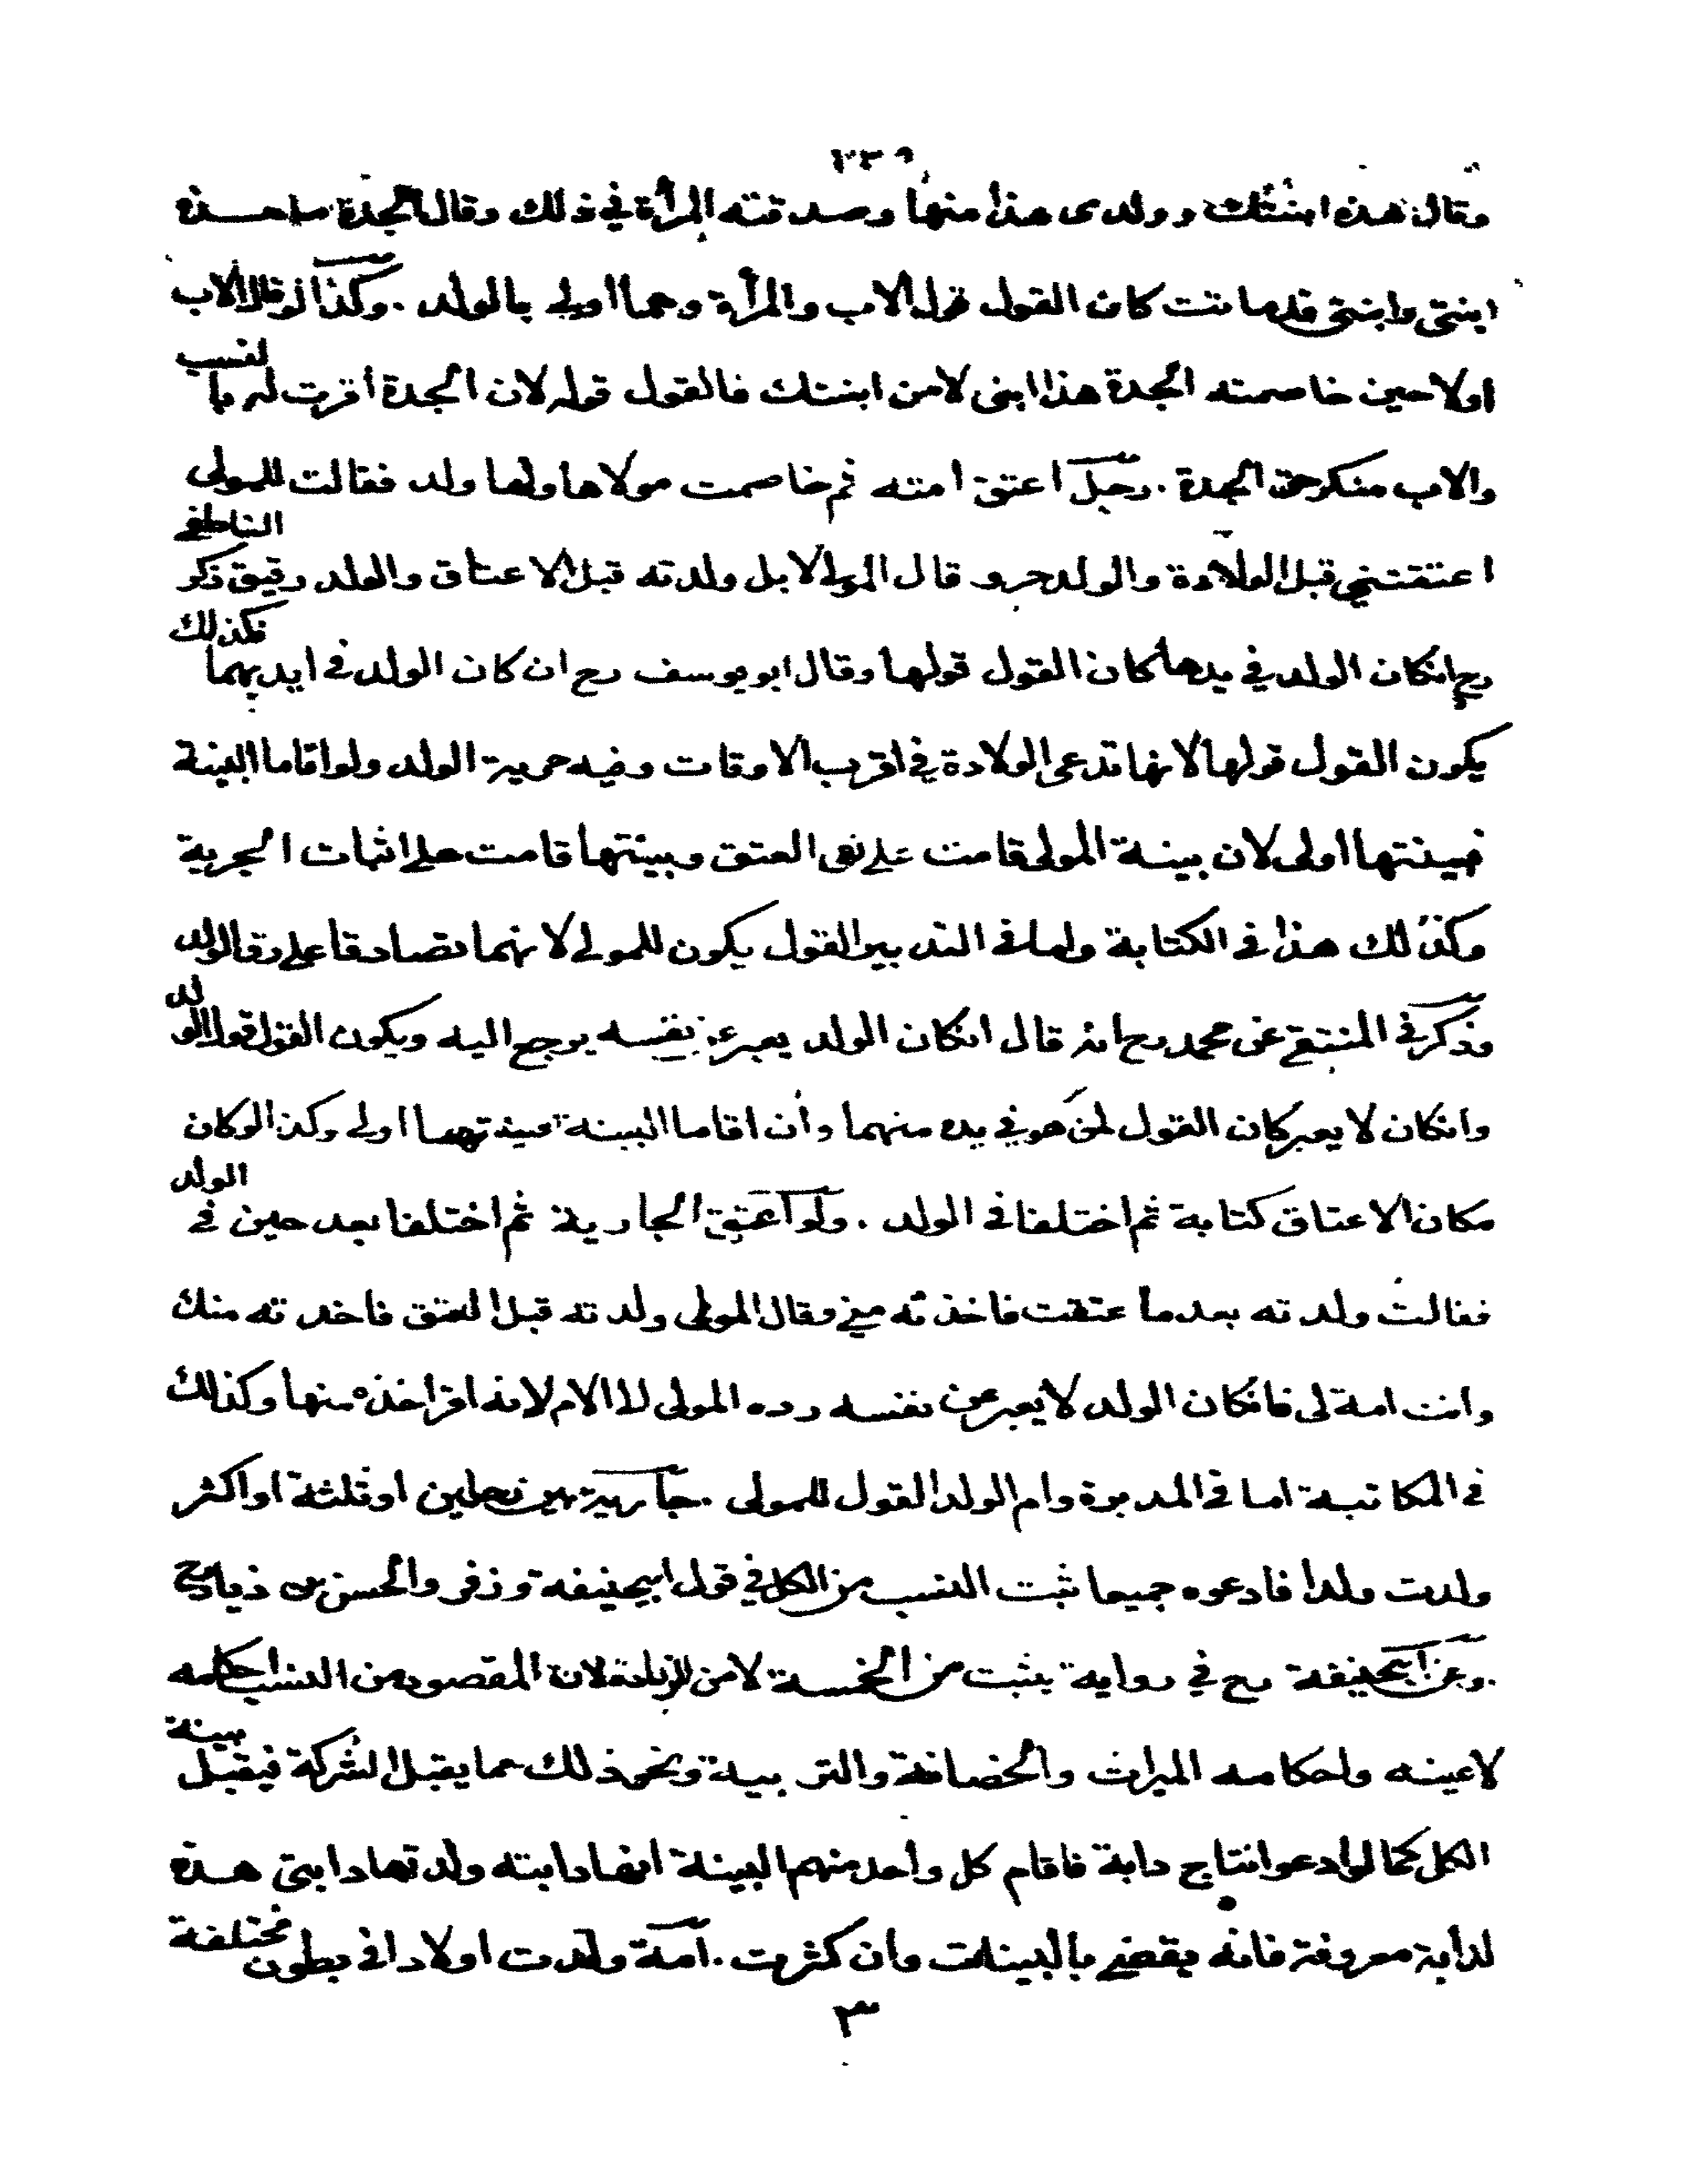 ٢٣٩
وقال هذه ابنتك وولدى هذا منها وصدقته المرأة في ذلك وقالت الجدة ما هـــذه
ابنتي وابنتي قد ماتت كان القول قول الاب والمرأة وهما اولى بالولد . وكذا لو قال الاب
اولا حين خاصمته الجدة هذا ابنى لا من ابنتك فالقول قوله لان الجدة اقرت له بالنسب
والاب منكر حق الجدة . رجل اعتق امته ثم خاصمت مولاها ولها ولد فقالت للمولى
اعتقتني قبل الولادة والولد حر و قال المولى لا بل ولدته قبل الاعتاق والولد رقيق ذكر الناطفي
رح انكان الولد في يدها كان القول قولها وقال ابو يوسف رح ان كان الولد في ايديهما فكذلك
يكون القول قولها لانها تدعى الولادة في اقرب الاوقات وفيه حرية الولد ولو اقاما البينة
فبينتها اولى لان بينة المولى قامت على نفى العتق وبينتها قامت على اثبات الحرية
وكذلك هذا في الكتابة واما في التدبير القول يكون للمولى لانهما تصادقا على رق الولد
وذكر في المنتقى عن محمد رح انه قال انكان الولد يعبر عن نفسه يرجع اليه ويكون القول قول الولد
وانكان لا يعبر كان القول لمن هو في يده منهما وان اقاما البينة فبينتهما اولى وكذا لو كان
مكان الاعتاق كتابة ثم اختلفا في الولد . ولو اعتق الجارية ثم اختلفا بعد حين في الولد
فقالت ولدته بعد ما عتقت فاخذته منى وقال المولى ولدته قبل العتق فاخذته منك
وانت امة لى فانكان الولد لا يعبر عن نفسه رده المولى الا الام لانه اقر اخذه منها وكذلك
في المكاتبة اما في المدبرة وام الولد القول للمولى . جارية بين رجلين او ثلثة او اكثر
ولدت ولدا فادعوه جميعا ثبت النسب من الكل في قول ابيحنيفة وزفر والحسن بن زياد رح
. وعن ابيحنيفة رح في رواية يثبت من الخمسة لا من الزيادة لان المقصود من النسب احكامه
لا عينه واحكامه الميراث والحضانة والتربية ونحو ذلك مما يقبل الشركة فيقبل بينة
الكل كما لو ادعوا نتاج دابة فاقام كل واحد منهم البينة انها دابته ولدتها دابتى هـــذه
لدابة معروفة فانه يقضى بالبينات وان كثرت . امة ولدت اولادا في بطون مختلفة
٣